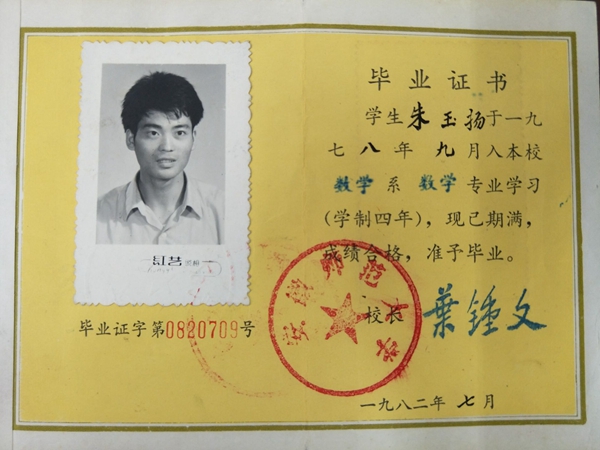 毕业证书
学生朱玉扬于一九
七八年九月入本校
数学系数学专业学习
(学制四年)，现已期满，
成绩合格，准予毕业。
校长 葉鍾文
安徽师范大学
毕业证字第0820709号
一九八二年七月